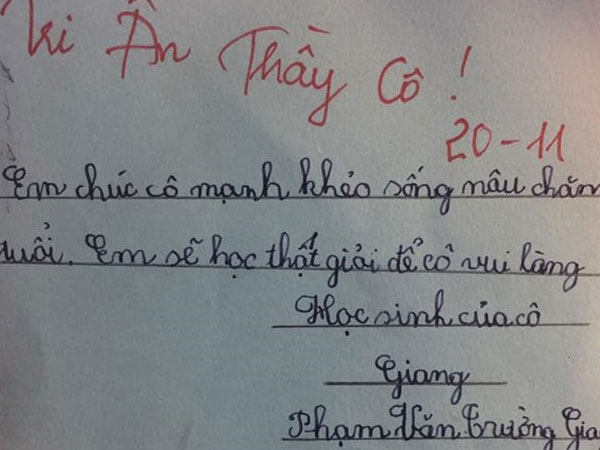 Tri Ân Thầy Cô !
20-11
Em chúc cô mạnh khẻo sống nâu chăm
tuổi. Em sẽ học thật giải để cô vui làng
Học sinh của cô
Giang
Phạm Văn Trường Gia